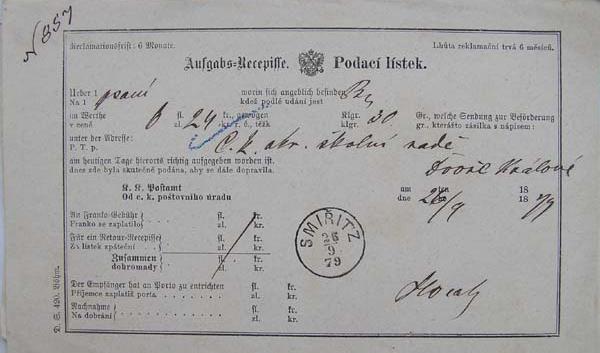 N 887
Reclamationsfrist: 6 Monate.
Lhůta reklamační trvá 6 měsíců.
Aufgabs-Recepisse. Podací lístek.
Ueber 1 psaní worin sich angeblich befinden
Na 1 kdež podlé udání jest
im Werthe 6 fl. 24 kr., gewogen Klgr. 30 Gr., welche Sendung zur Beförderung
v ceně zl. kr. r. č., těžk klgr. gr., kterážto zásilka s nápisem:
unter der Adresse:
P. T. p. C. k. okr. školní radě
am heutigen Tage hierorts richtig aufgegeben worden ist.
dnes zde byla skutečně podána, aby se dále dopravila.
Králové
K. K. Postamt
Od c. k. poštovního úradu
am ten 18
dne 26/9 18 79
An Franko-Gebühr fl. kr.
Franko se zaplatilo zl. kr.
Für ein Retour-Recepisse fl. kr.
Za lístek zpáteční zl. kr.
Zusammen fl. kr.
dohromady zl. kr.
SMIŘITZ
26
9
79
Der Empfänger hat an Porto zu entrichten fl. kr.
Příjemce zaplatiž porta zl. kr.
Nachnahme fl. kr.
Na dobrání zl. kr.
D. S. 420. Böhm.